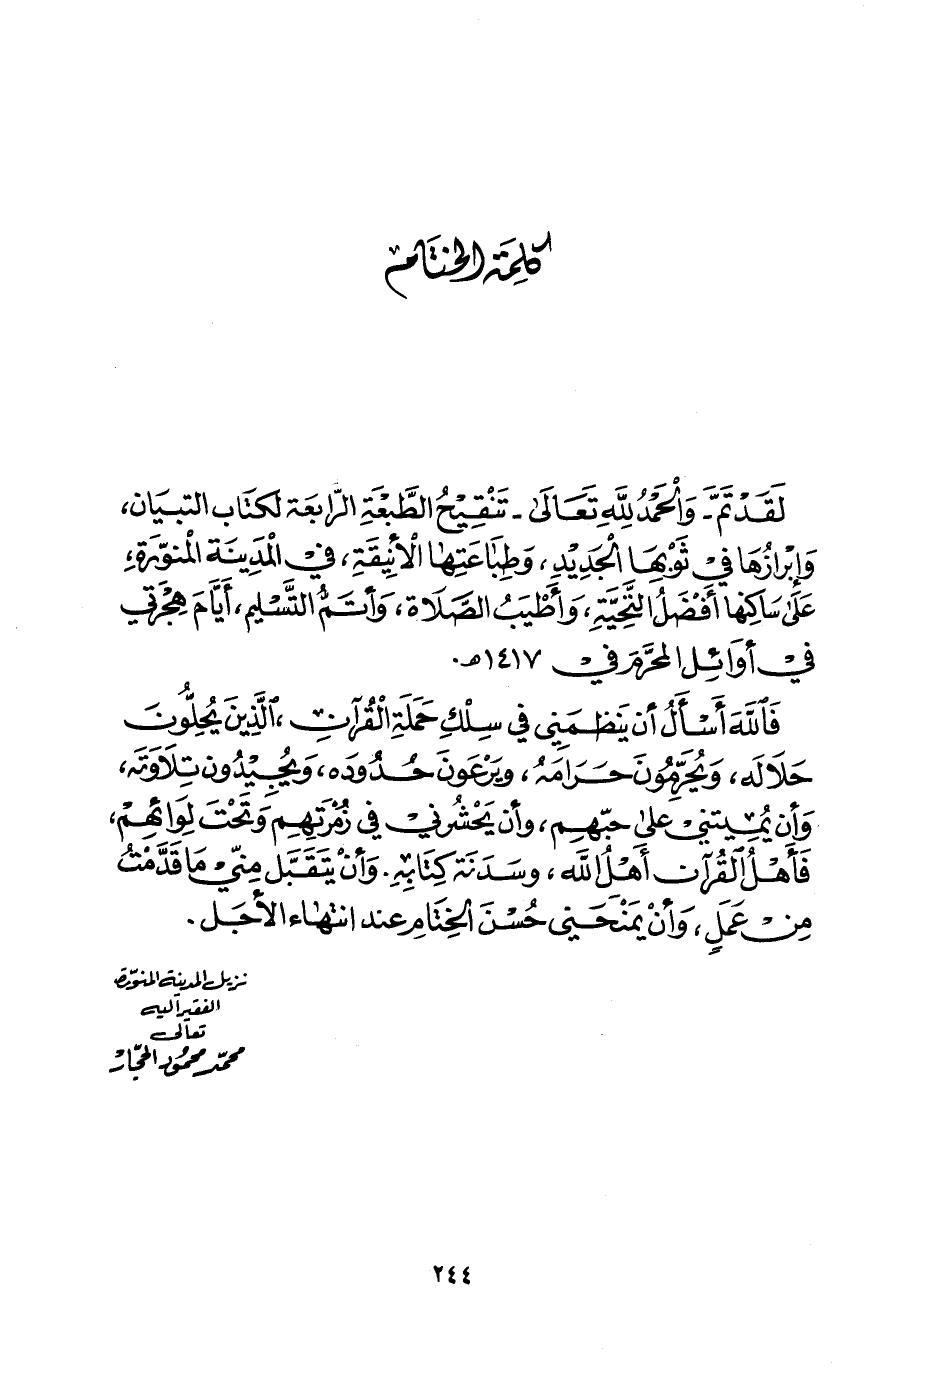 كلمة الختام
لَقَدْ تَمَّ - وَالْحَمْدُ لِلَّهِ تَعَالَىٰ - تَنْقِيْحُ الطَّبْعَةِ الرَّابِعَة لكتَاب التبيَان،
وَإبرازُهَا فِيْ ثَوْبِهَا الْجَدِيْدِ، وَطِبَاعَتِهَا الْأَنِيقَةِ، فِيْ الْمَدِينَة الْمنوَّرَةِ،
عَلَىٰ سَاكِنِهَا أَفْضَلُ التَّحِيَّةِ، وَأَطْيَبُ الصَّلَاة، وَأتَمُّ التَّسْلِيم، أيَّامَ هِجْرَتي
فيْ أوَائِل المحَرَّم فيْ ١٤١٧هـ.
فَٱللَّهَ أَسْأَلُ أن يَنظمَني في سِلْكِ حَمَلَةِ الْقُرآنِ، ٱلَّذِينَ يُحِلُّونَ
حَلَالَه، وَيُحَرِّمُونَ حَرَامَهُ، ويَرْعَونَ حُدُودَه، وَيُجِيْدُون تِلَاوَتَه،
وَأن يُمِيتنيْ علىٰ حبّهم، وأن يَحْشُرنيْ في زُمْرَتِهِم وَتَحْتَ لِوَائهِمْ،
فَأَهْلُ ٱلقُرآن أَهْلُ الله، وسَدَنَة كِتَابِهِ. وَأَنْ يَتَقَبَّل مِنّيْ مَا قَدَّمْتُ
مِنْ عَمَلٍ، وَأَنْ يَمْنَحَني حُسْنَ الخِتَام عند انتهَاء الأَجَل.
نزيل المدينة المنورة
الفقير إليه
تعالى
محمّد محمُود الحجّار
٢٤٤